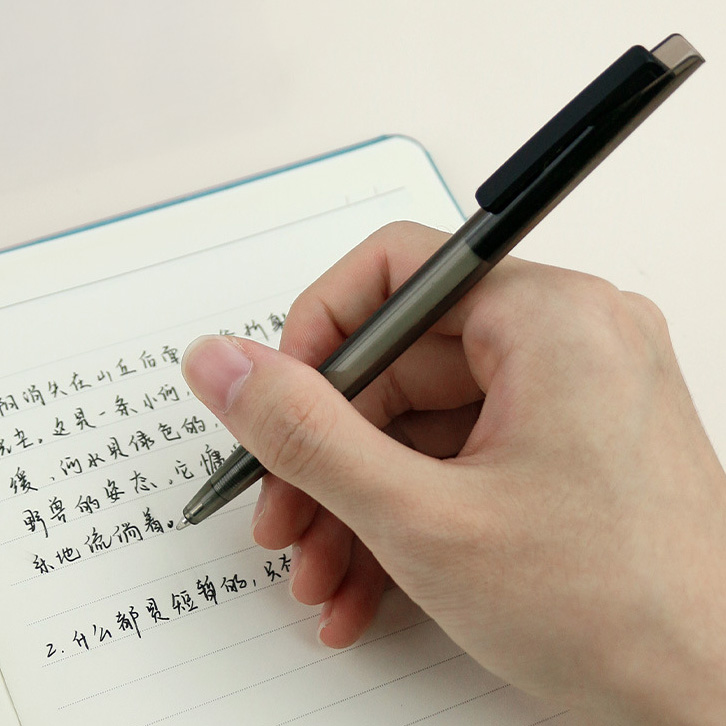 阳消失在山丘后面
光芒。这是一条小河,
缓,河水是绿色的,
野兽的姿态,它慵
乐地流淌着。
2.什么都是短暂的,只有